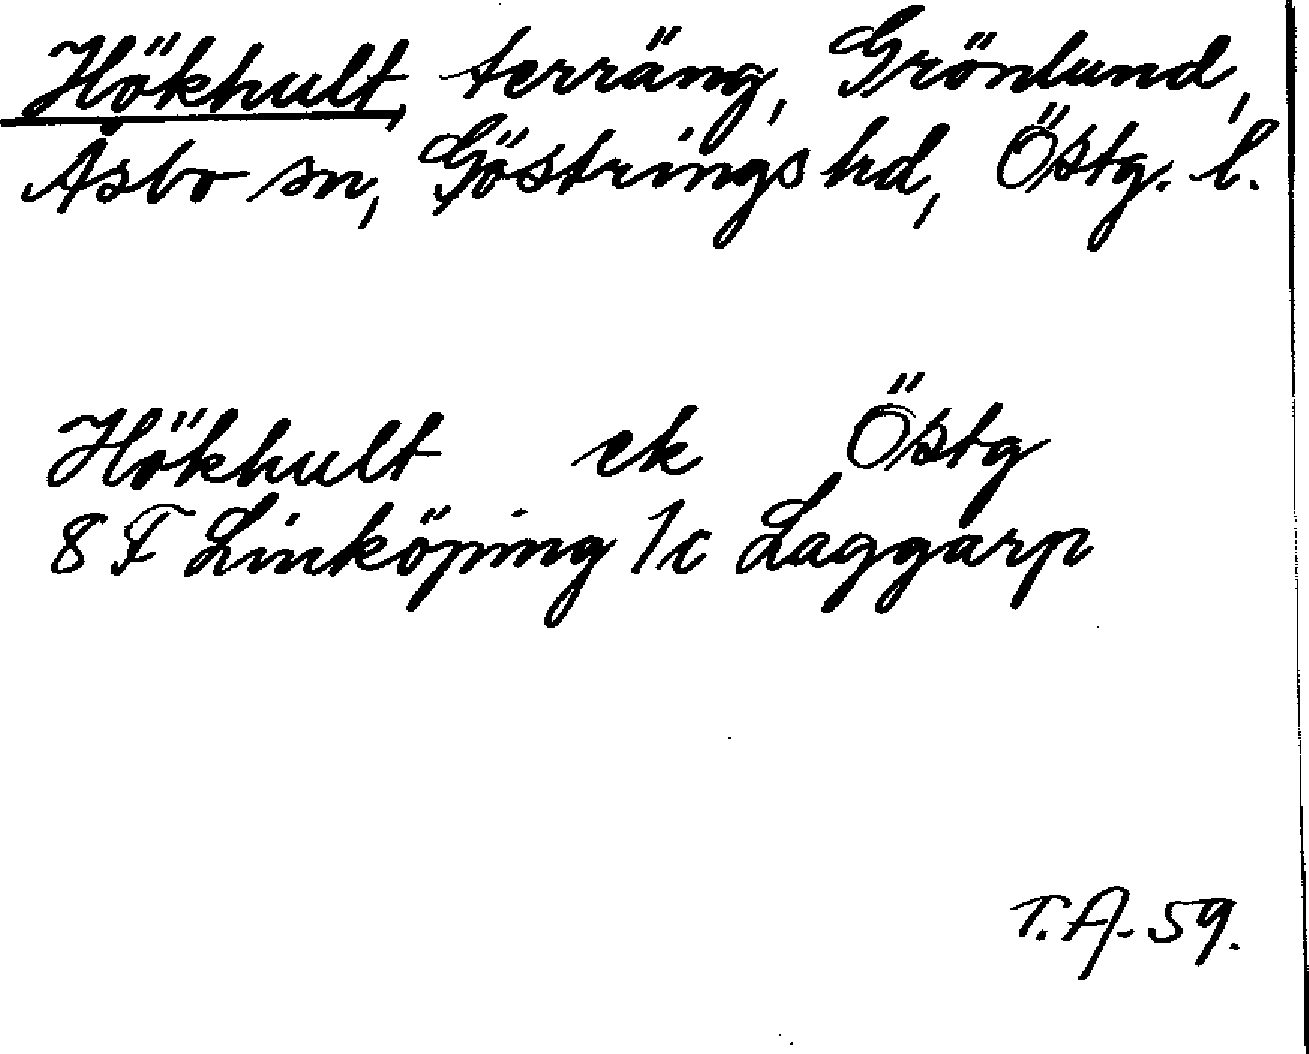 Hökhult, terräng, Grönlund,
Åsbo sn, Göstrings hd, Östg. l.
Hökhult ek Östg
8 F Linköping 1c Laggarp
T.A. 59.